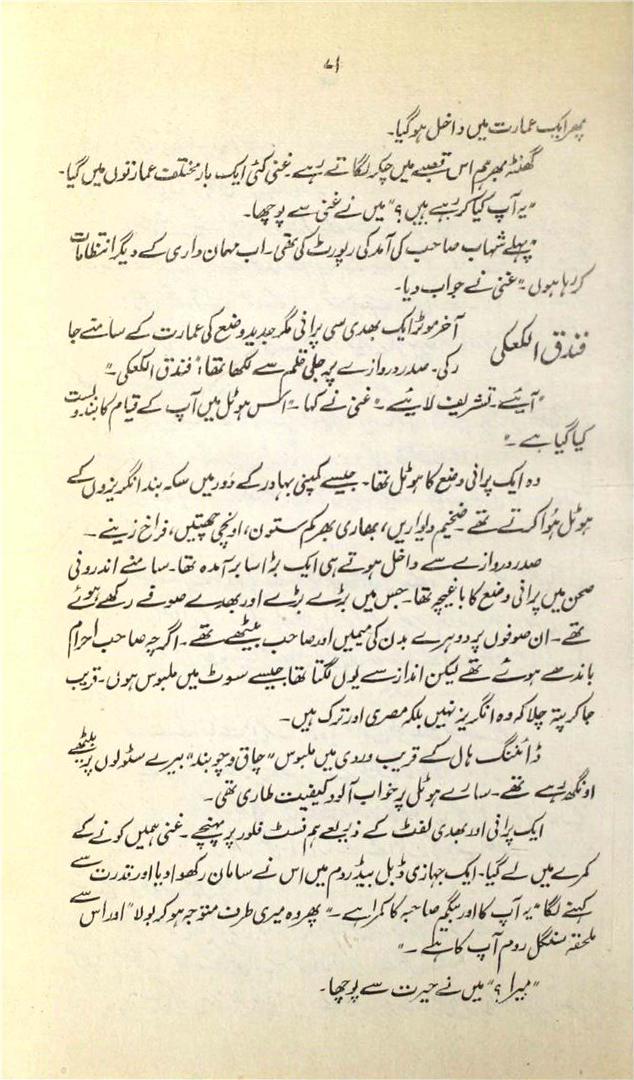 ۷۱
پھر ایک عمارت میں داخل ہو گیا۔
گھنٹہ بھر ہم اس قصبے میں چکر لگاتے رہے۔ غنی کئی ایک بار مختلف عمارتوں میں گیا۔
"یہ آپ کیا کر رہے ہیں؟" میں نے غنی سے پوچھا۔
"پہلے شہاب صاحب کی آمد کی رپورٹ کی تھی۔ اب مہمان داری کے دیگر انتظامات
کر رہا ہوں۔" غنی نے جواب دیا۔
فندق الکعکی
آخر موٹر ایک بھدی سی پرانی مگر جدید وضع کی عمارت کے سامنے جا
رکی۔ صدر دروازے پر جلی قلم سے لکھا تھا، "فندق الکعکی۔"
"آیئے۔ تشریف لایئے۔" غنی نے کہا۔ "اس ہوٹل میں آپ کے قیام کا بندوبست
کیا گیا ہے۔"
وہ ایک پرانی وضع کا ہوٹل تھا۔ جیسے کمپنی بہادر کے دور میں سکہ بند انگریزوں کے
ہوٹل ہوا کرتے تھے۔ ضخیم دیواریں، بھاری بھرکم ستون، اونچی چھتیں، فراخ زینے۔
صدر دروازے سے داخل ہوتے ہی ایک بڑا سا برآمدہ تھا۔ سامنے اندرونی
صحن میں پرانی وضع کا باغیچہ تھا۔ جس میں بڑے بڑے اور بھدے صوفے رکھے ہوئے
تھے۔ ان صوفوں پر دوہرے بدن کی میمیں اور صاحب بیٹھے تھے۔ اگرچہ صاحب احرام
باندھے ہوئے تھے لیکن انداز سے یوں لگتا تھا جیسے سوٹ میں ملبوس ہوں۔ قریب
جا کر پتہ چلا کہ وہ انگریز نہیں بلکہ مصری اور ترک ہیں۔
ڈائننگ ہال کے قریب وردی میں ملبوس "چاق و چوبند" بیرے سٹولوں پر بیٹھے
اونگھ رہے تھے۔ سارے ہوٹل پر خواب آلود کیفیت طاری تھی۔
ایک پرانی اور بھدی لفٹ کے ذریعے ہم فسٹ فلور پر پہنچے۔ غنی ہمیں کونے کے
کمرے میں لے گیا۔ ایک جہازی ڈبل بیڈ روم میں اس نے سامان رکھوا دیا اور قدرت سے
کہنے لگا "یہ آپ کا اور بیگم صاحبہ کا کمرا ہے۔" پھر وہ میری طرف متوجہ ہو کر بولا "اور اس سے
ملحقہ سنگل روم آپ کا ہے۔"
"میرا؟" میں نے حیرت سے پوچھا۔